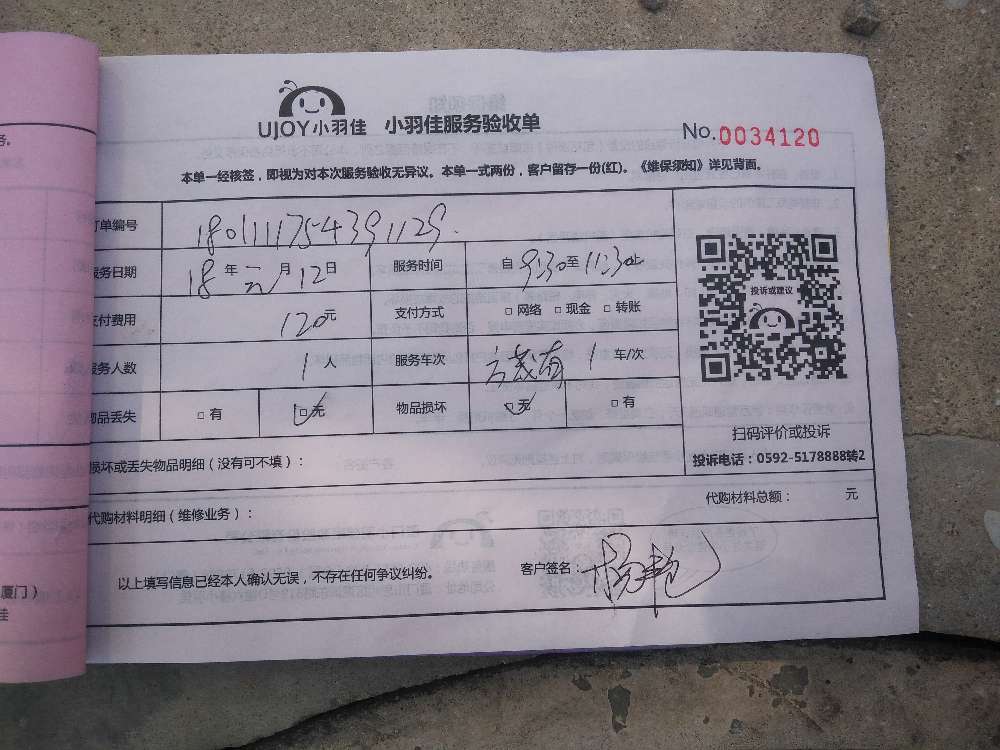 务。
UJOY小羽佳 小羽佳服务验收单
No.0034120
本单一经核签，即视为对本次服务验收无异议。本单一式两份，客户留存一份(红)。《维保须知》详见背面。
订单编号 1801111754391129
服务日期 18年元月12日 服务时间 自9:30至11:30止
支付费用 120元 支付方式 □网络 □现金 □转账
服务人数 1人 服务车次 1车/次
物品丢失 □有 □无 物品损坏 □无 □有
投诉或建议
扫码评价或投诉
投诉电话：0592-5178888转2
损坏或丢失物品明细（没有可不填）：
代购材料明细（维修业务）： 代购材料总额： 元
以上填写信息已经本人确认无误，不存在任何争议纠纷。 客户签名：
厦门）
佳